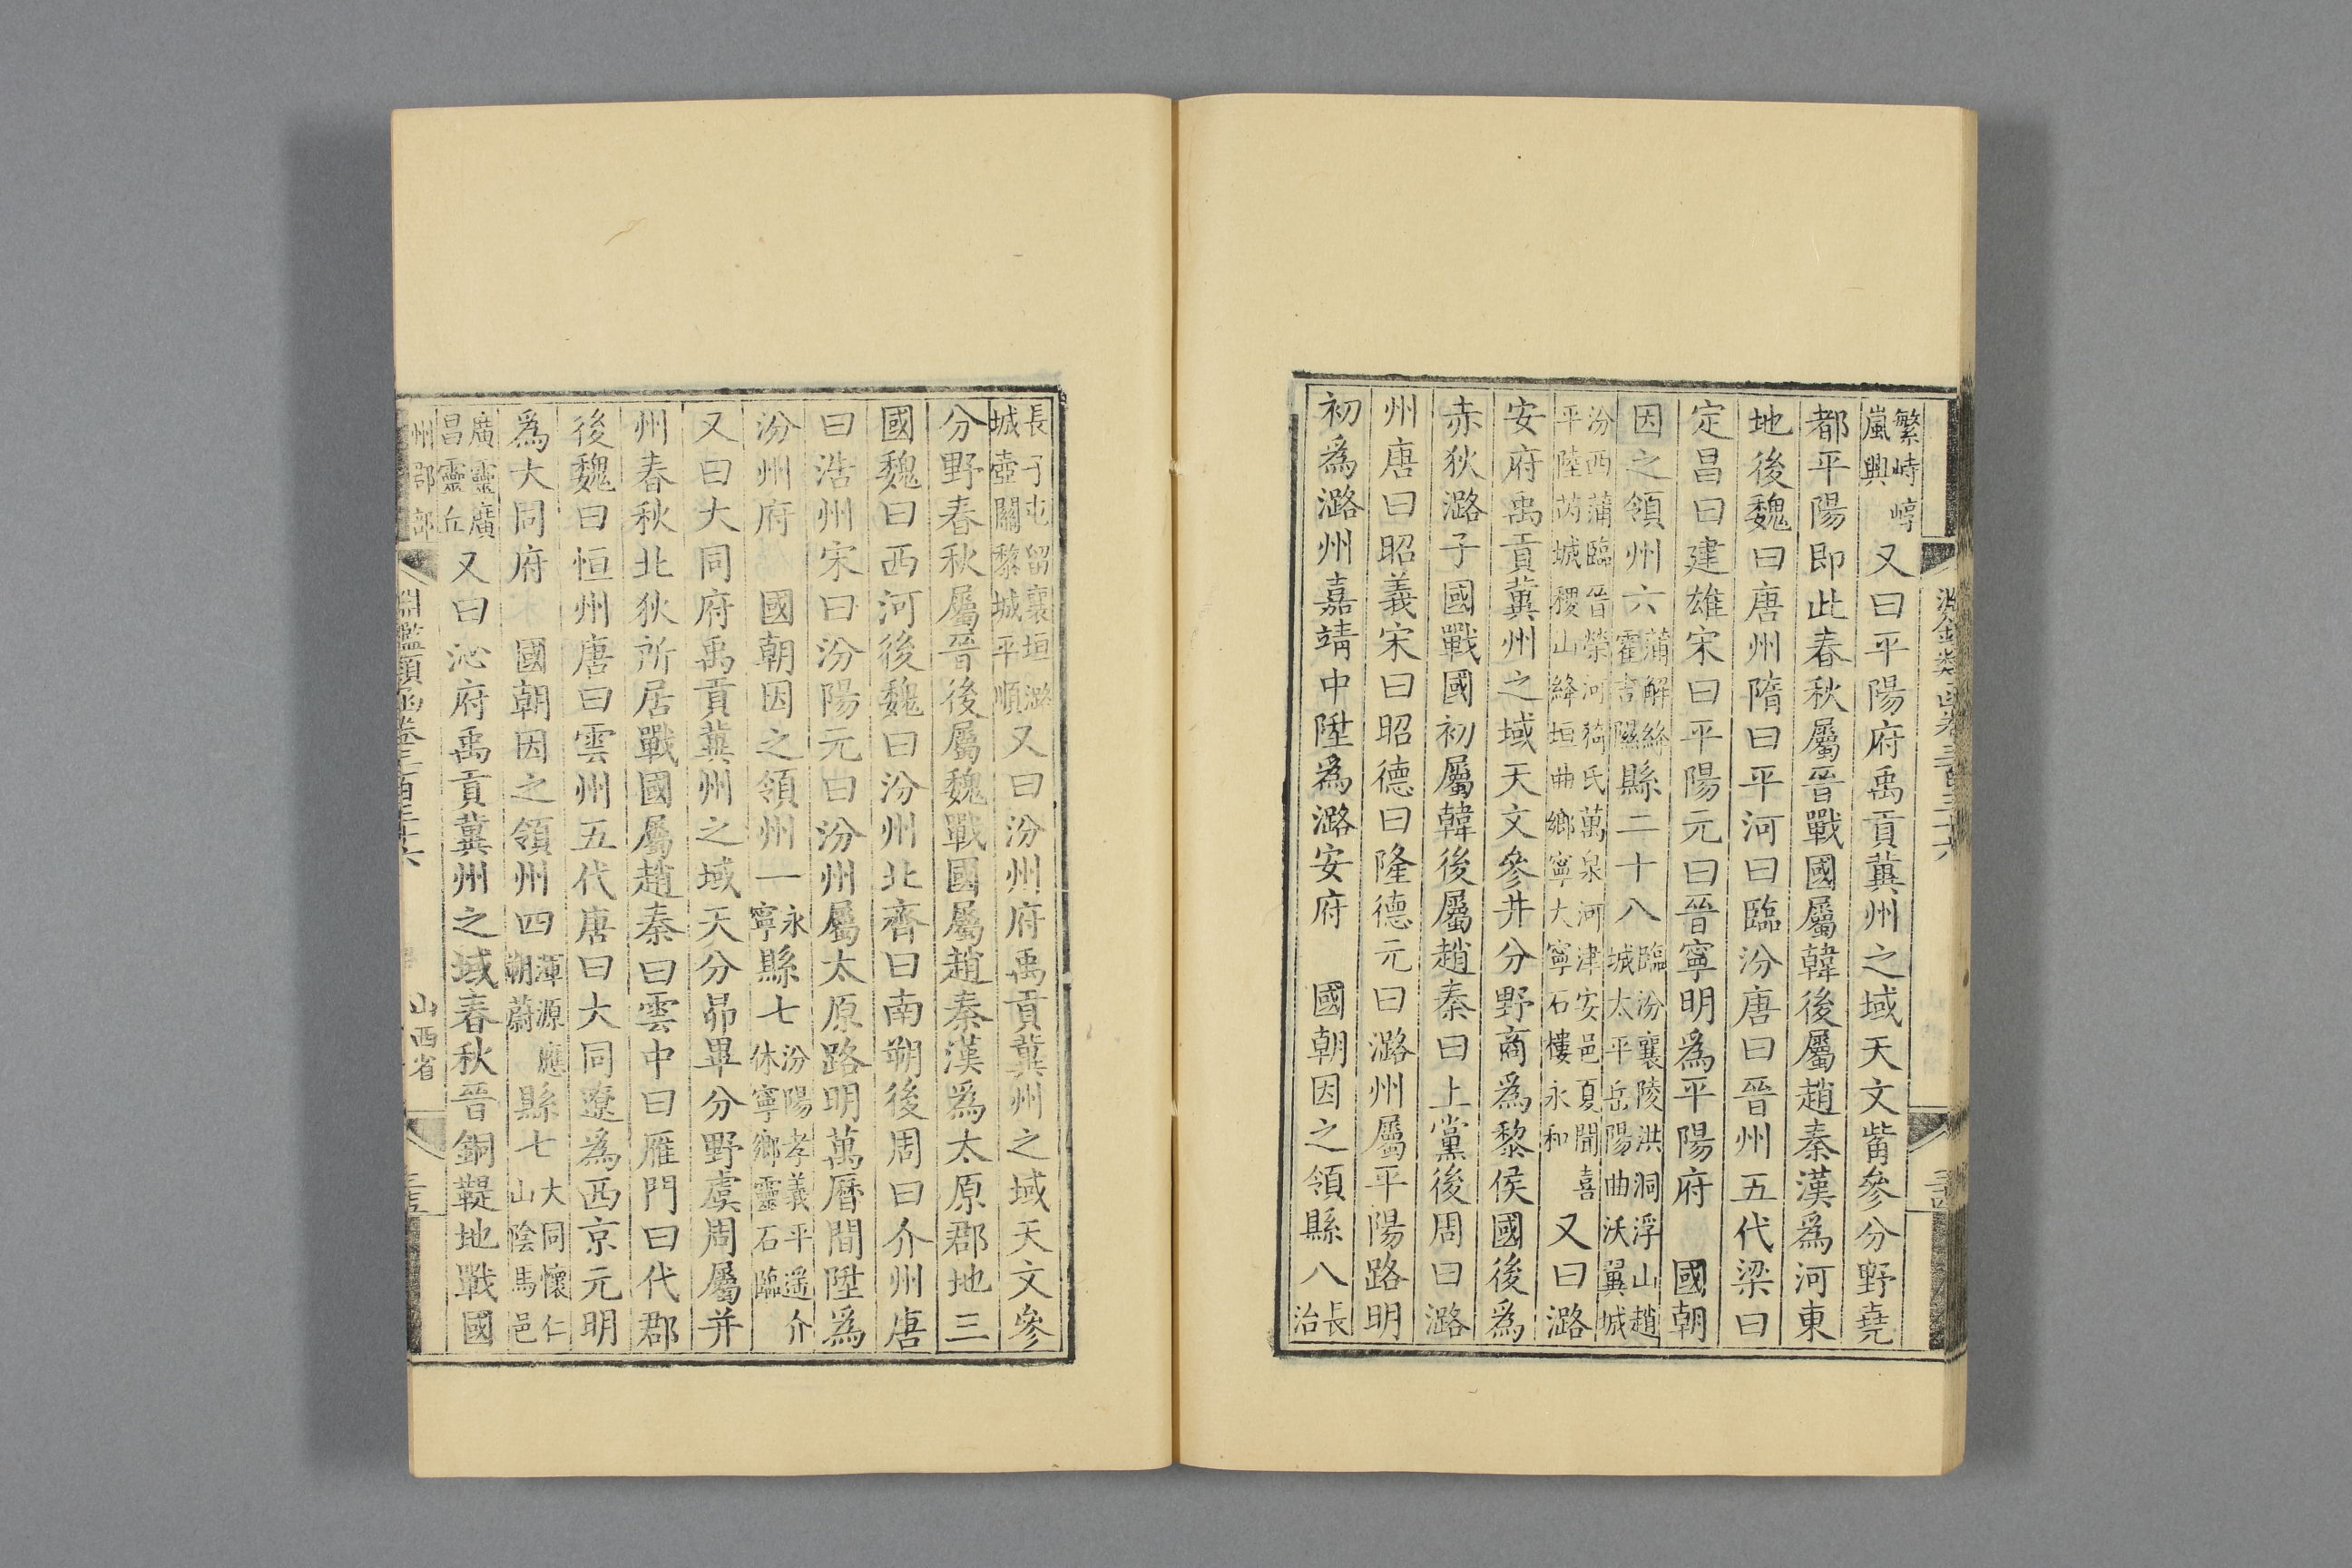 繁峙崞嵐興又曰平陽府禹貢冀州之域天文觜參分野堯
都平陽即此春秋屬晉戰國屬韓後屬趙秦漢爲河東
地後魏曰唐州隋曰平河曰臨汾唐曰晉州五代梁曰
定昌曰建雄宋曰平陽元曰晉寧明爲平陽府　國朝
因之領州六蒲解絳霍吉隰縣二十八臨汾襄陵洪洞浮山趙城太平岳陽曲沃翼城
汾西蒲臨晉榮河猗氏萬泉河津安邑夏聞喜平陸芮城稷山絳垣曲鄉寧大寧石樓永和又曰潞
安府禹貢冀州之域天文參井分野商爲黎侯國後爲
赤狄潞子國戰國初屬韓後屬趙秦曰上黨後周曰潞
州唐曰昭義宋曰昭德曰隆德元曰潞州屬平陽路明
初爲潞州嘉靖中陞爲潞安府　國朝因之領縣八長治
長子屯留襄垣潞城壺關黎城平順又曰汾州府禹貢冀州之域天文參
分野春秋屬晉後屬魏戰國屬趙秦漢爲太原郡地三
國魏曰西河後魏曰汾州北齊曰南朔後周曰介州唐
曰浩州宋曰汾陽元曰汾州屬太原路明萬曆間陞爲
汾州府　國朝因之領州一永寧縣七汾陽孝義平遥介休寧鄉靈石臨
又曰大同府禹貢冀州之域天分昴畢分野虞周屬并
州春秋北狄所居戰國屬趙秦曰雲中曰雁門曰代郡
後魏曰恒州唐曰雲州五代唐曰大同遼爲西京元明
爲大同府　國朝因之領州四渾源應朔蔚縣七大同懷仁山陰馬邑
廣靈廣昌靈丘又曰沁府禹貢冀州之域春秋晉銅鞮地戰國
州郡部
淵鑑類函卷三百三十六
山西省